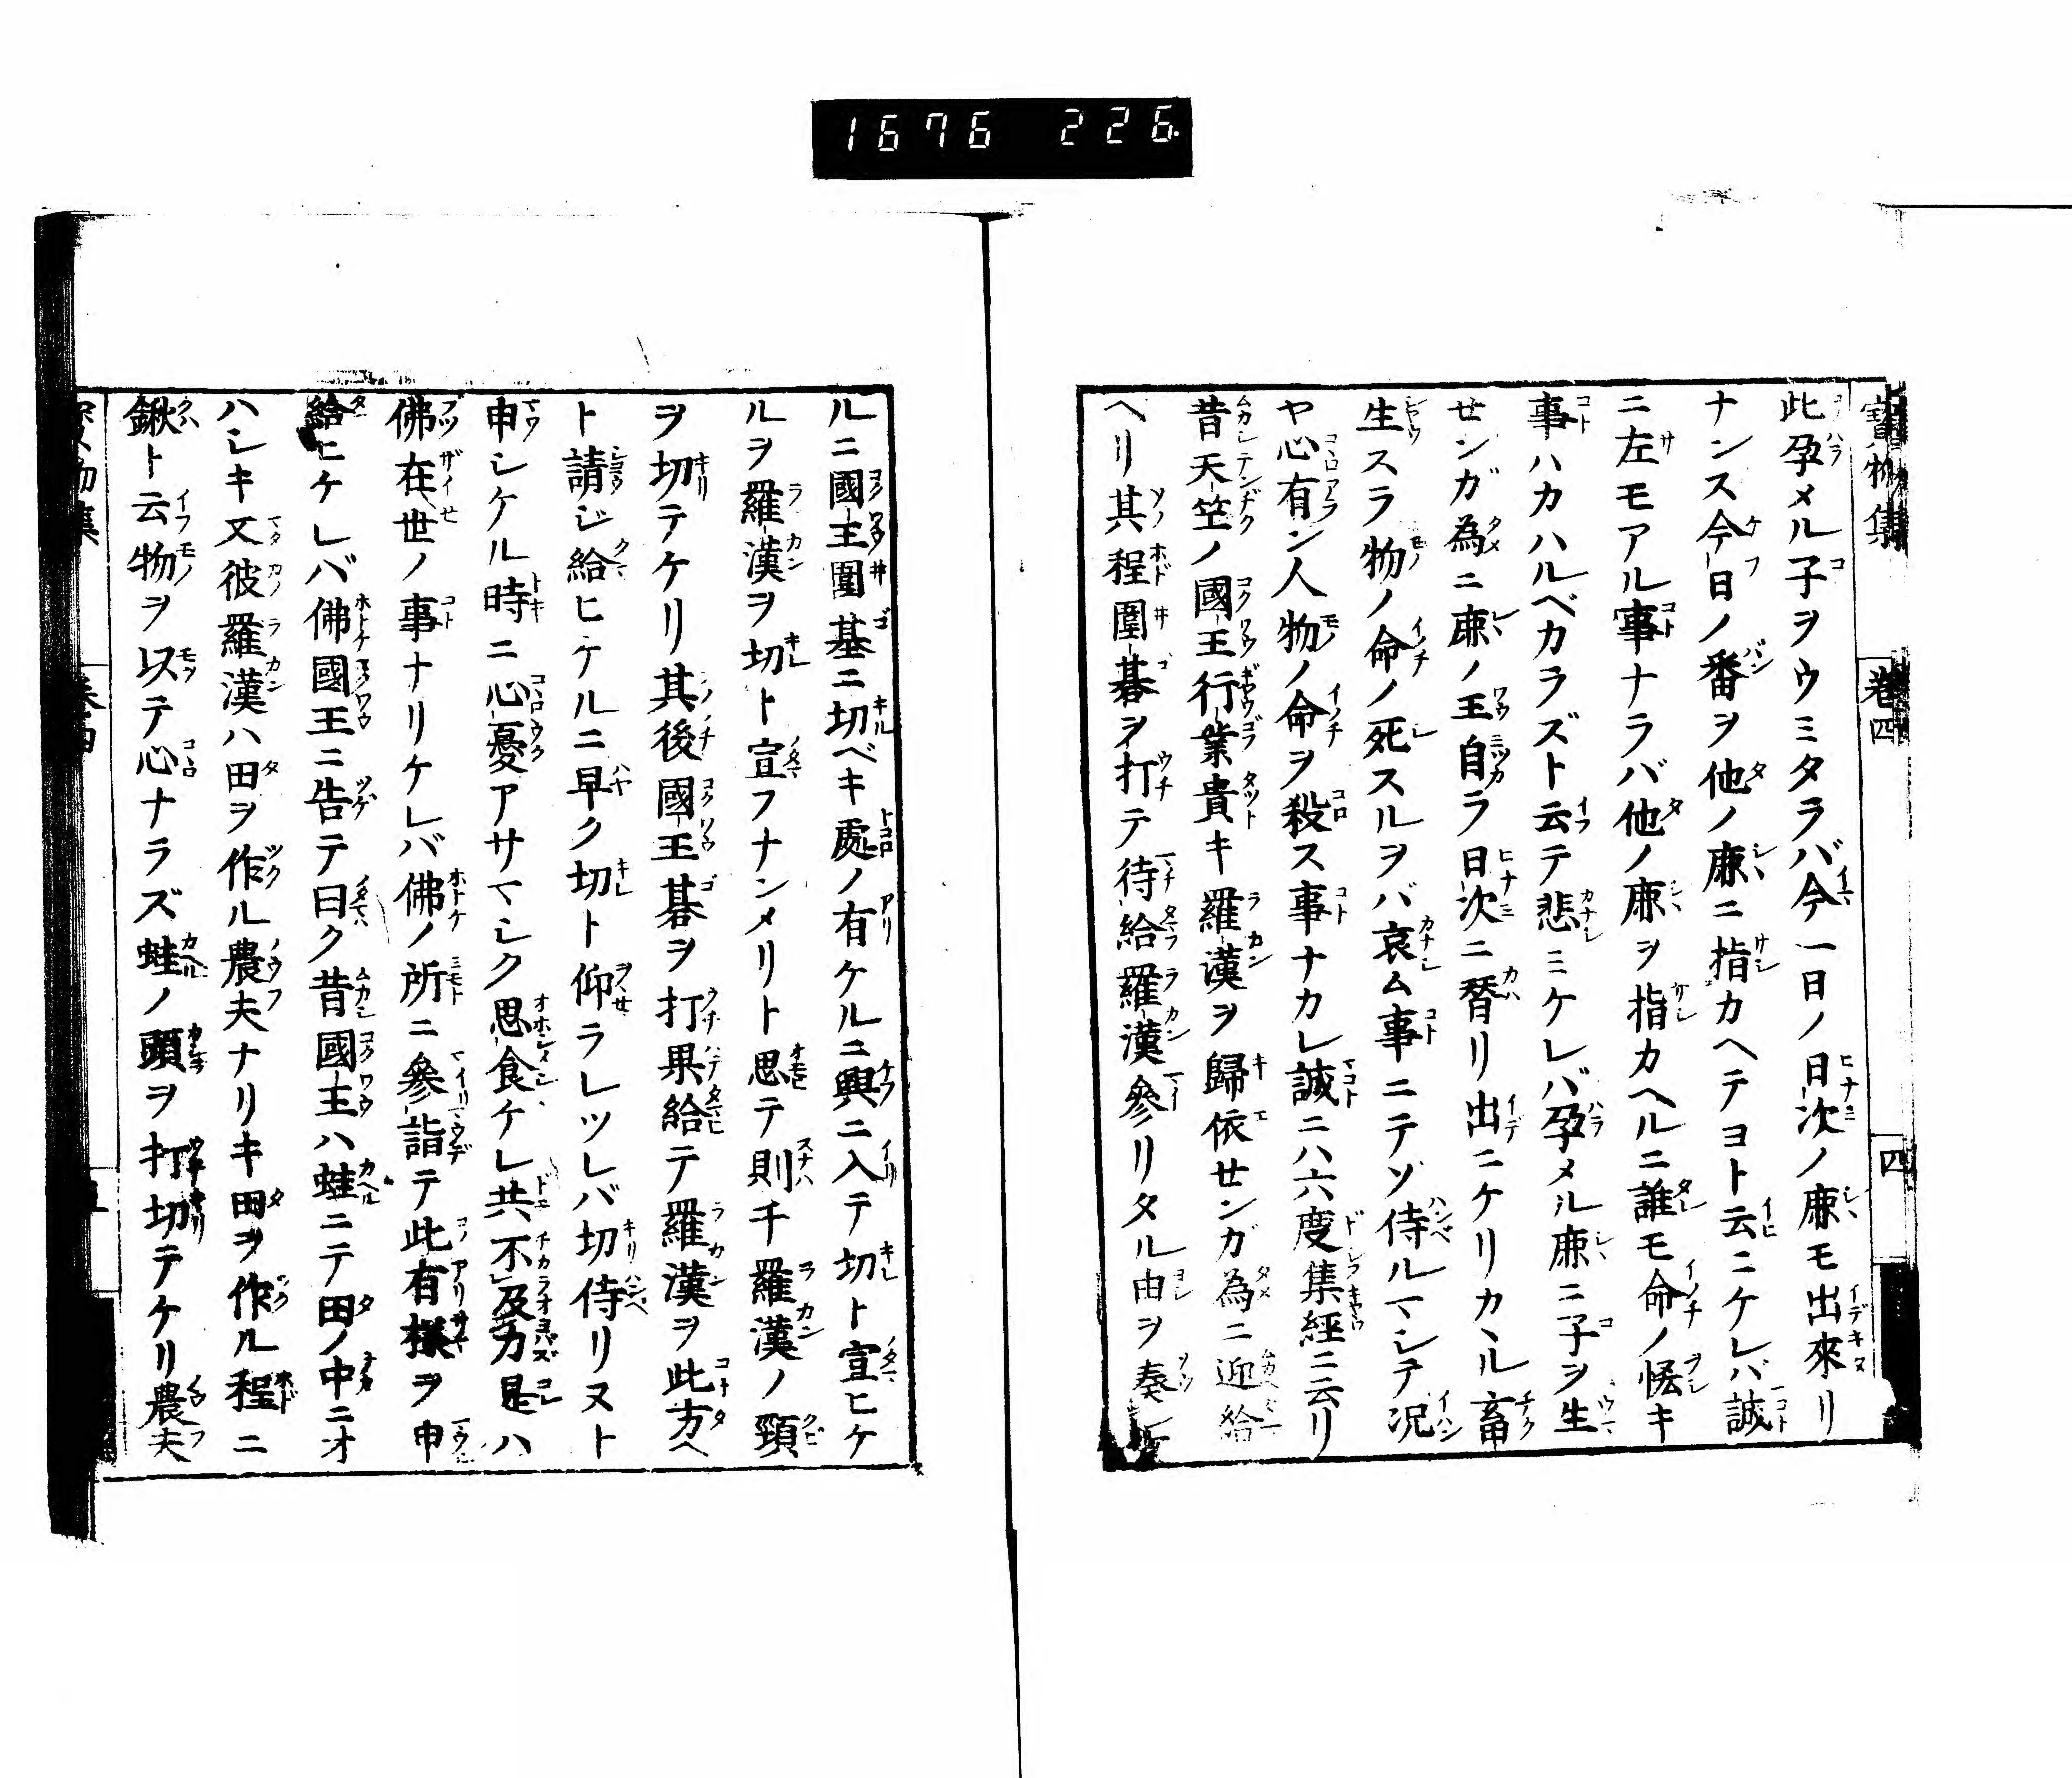 1676 226
寶物集 卷四 四
此孕メル子ヲウミタラバ今一日ノ日次ノ麻モ出來リ
ナンス今日ノ番ヲ他ノ麻ニ指カヘテヨト云ニケレバ誠
ニ左モアル事ナラバ他ノ麻ヲ指カヘルニ誰モ命ノ恡キ
事ハカハルベカラズト云テ悲ミケレバ孕メル麻ニ子ヲ生
せンガ為ニ麻ノ王自ラ日次ニ替リ出ニケリカヽル畜
生スラ物ノ命ノ死スルヲバ哀ム事ニテゾ侍ルマシテ况
ヤ心有ン人物ノ命ヲ殺ス事ナカレ誠ニハ六度集經ニ云リ
昔天竺ノ國王行業貴キ羅漢ヲ歸依せンガ為ニ迎給
ヘリ其程圍碁ヲ打テ待給羅漢參リタル由ヲ奏
ルニ國王圍基ニ切ベキ處ノ有ケルニ興ニ入テ切ト宣ヒケ
ルヲ羅漢ヲ切ト宣フナンメリト思テ則チ羅漢ノ頸
ヲ切テケリ其後國王碁ヲ打果給テ羅漢ヲ此方ヘ
ト請ジ給ヒケルニ早ク切ト仰ラレツレバ切侍リヌト
申シケル時ニ心憂アサマシク思食ケレ共不及力是ハ
佛在世ノ事ナリケレバ佛ノ所ニ參詣テ此有樣ヲ申
給ヒケレバ佛國王ニ告テ曰ク昔國王ハ蛙ニテ田ノ中ニオ
ハシキ又彼羅漢ハ田ヲ作ル農夫ナリキ田ヲ作ル程ニ
鍬ト云物ヲ以テ心ナラズ蛙ノ頭ヲ打切テケリ農夫
物集